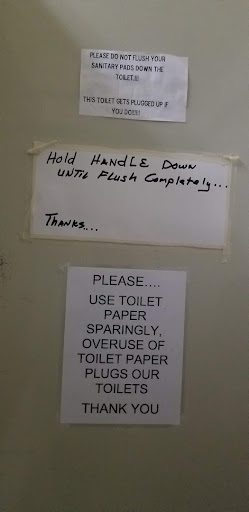 PLEASE DO NOT FLUSH YOUR
SANITARY PADS DOWN THE
TOILET.!!!
THIS TOILET GETS PLUGGED UP IF
YOU DO!!!!!
Hold HANDLE DOWN
UNTIL FLUSH Completely...
THANKS...
PLEASE....
USE TOILET
PAPER
SPARINGLY,
OVERUSE OF
TOILET PAPER
PLUGS OUR
TOILETS
THANK YOU